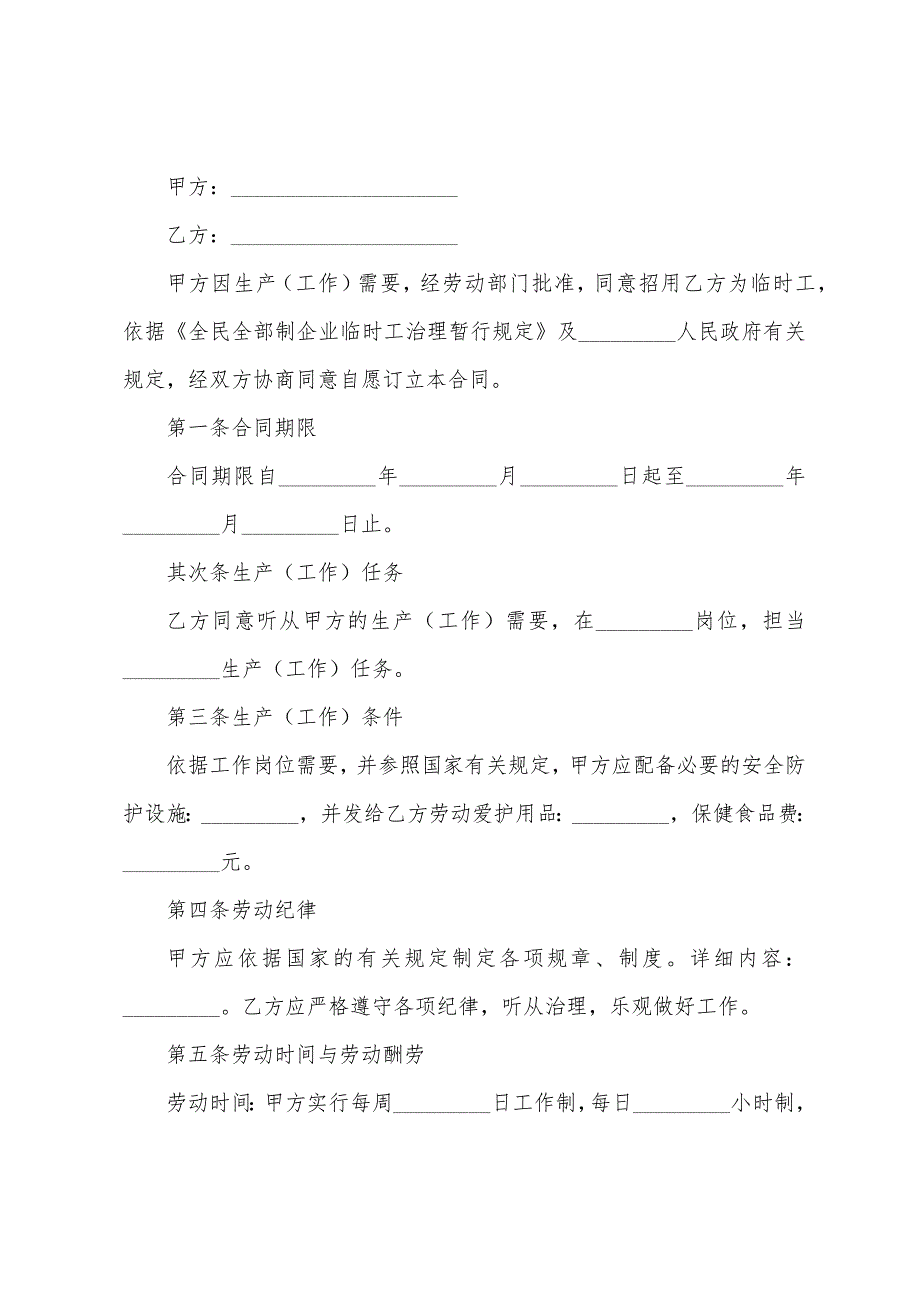 甲方：_____________________
乙方：_____________________
甲方因生产（工作）需要，经劳动部门批准，同意招用乙方为临时工，
依据《全民全部制企业临时工治理暂行规定》及_________人民政府有关
规定，经双方协商同意自愿订立本合同。
第一条合同期限
合同期限自_________年_________月_________日起至_________年
_________月_________日止。
其次条生产（工作）任务
乙方同意听从甲方的生产（工作）需要，在_________岗位，担当
_________生产（工作）任务。
第三条生产（工作）条件
依据工作岗位需要，并参照国家有关规定，甲方应配备必要的安全防
护设施：_________，并发给乙方劳动爱护用品：_________，保健食品费：
_________元。
第四条劳动纪律
甲方应依据国家的有关规定制定各项规章、制度。详细内容：
_________。乙方应严格遵守各项纪律，听从治理，乐观做好工作。
第五条劳动时间与劳动酬劳
劳动时间：甲方实行每周_________日工作制，每日_________小时制，